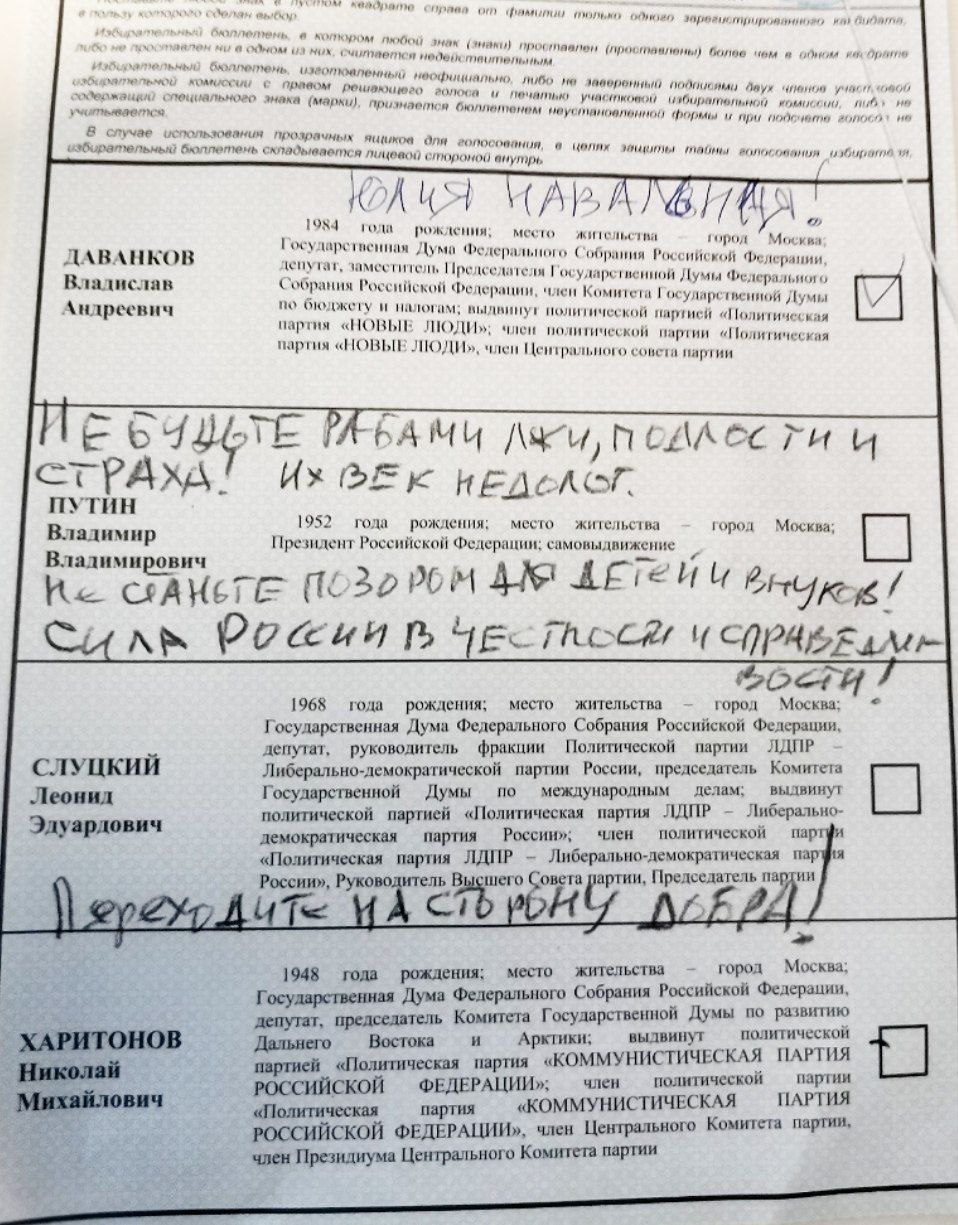 знак в пустом квадрате справа от фамилии только одного зарегистрированного кандидата,
в пользу которого сделан выбор.
Избирательный бюллетень, в котором любой знак (знаки) проставлен (проставлены) более чем в одном квадрате
либо не проставлен ни в одном из них, считается недействительным.
Избирательный бюллетень, изготовленный неофициально, либо не заверенный подписями двух членов участковой
избирательной комиссии с правом решающего голоса и печатью участковой избирательной комиссии, либо не
содержащий специального знака (марки), признается бюллетенем неустановленной формы и при подсчете голосов не
учитывается.
В случае использования прозрачных ящиков для голосования, в целях защиты тайны голосования избирателя,
избирательный бюллетень складывается лицевой стороной внутрь
ЮЛИЯ НАВАЛЬНАЯ!
ДАВАНКОВ
Владислав
Андреевич
1984 года рождения; место жительства – город Москва;
Государственная Дума Федерального Собрания Российской Федерации,
депутат, заместитель Председателя Государственной Думы Федерального
Собрания Российской Федерации, член Комитета Государственной Думы
по бюджету и налогам; выдвинут политической партией «Политическая
партия «НОВЫЕ ЛЮДИ»; член политической партии «Политическая
партия «НОВЫЕ ЛЮДИ», член Центрального совета партии
НЕ БУДЬТЕ РАБАМИ ЛЖИ, ПОДЛОСТИ И
СТРАХА! ИХ ВЕК НЕДОЛОГ.
ПУТИН
Владимир
Владимирович
1952 года рождения; место жительства – город Москва;
Президент Российской Федерации; самовыдвижение
Не СТАНЬТЕ ПОЗОРОМ ДЛЯ ДЕТЕЙ И ВНУКОВ!
СИЛА РОССИИ В ЧЕСТНОСТИ И СПРАВЕДЛИ
ВОСТИ!
СЛУЦКИЙ
Леонид
Эдуардович
1968 года рождения; место жительства – город Москва;
Государственная Дума Федерального Собрания Российской Федерации,
депутат, руководитель фракции Политической партии ЛДПР –
Либерально-демократической партии России, председатель Комитета
Государственной Думы по международным делам; выдвинут
политической партией «Политическая партия ЛДПР – Либерально-
демократическая партия России»; член политической партии
«Политическая партия ЛДПР – Либерально-демократическая партия
России», Руководитель Высшего Совета партии, Председатель партии
Переходите НА СТОРОНУ ДОБРА!
ХАРИТОНОВ
Николай
Михайлович
1948 года рождения; место жительства – город Москва;
Государственная Дума Федерального Собрания Российской Федерации,
депутат, председатель Комитета Государственной Думы по развитию
Дальнего Востока и Арктики; выдвинут политической
партией «Политическая партия «КОММУНИСТИЧЕСКАЯ ПАРТИЯ
РОССИЙСКОЙ ФЕДЕРАЦИИ»; член политической партии
«Политическая партия «КОММУНИСТИЧЕСКАЯ ПАРТИЯ
РОССИЙСКОЙ ФЕДЕРАЦИИ», член Центрального Комитета партии,
член Президиума Центрального Комитета партии